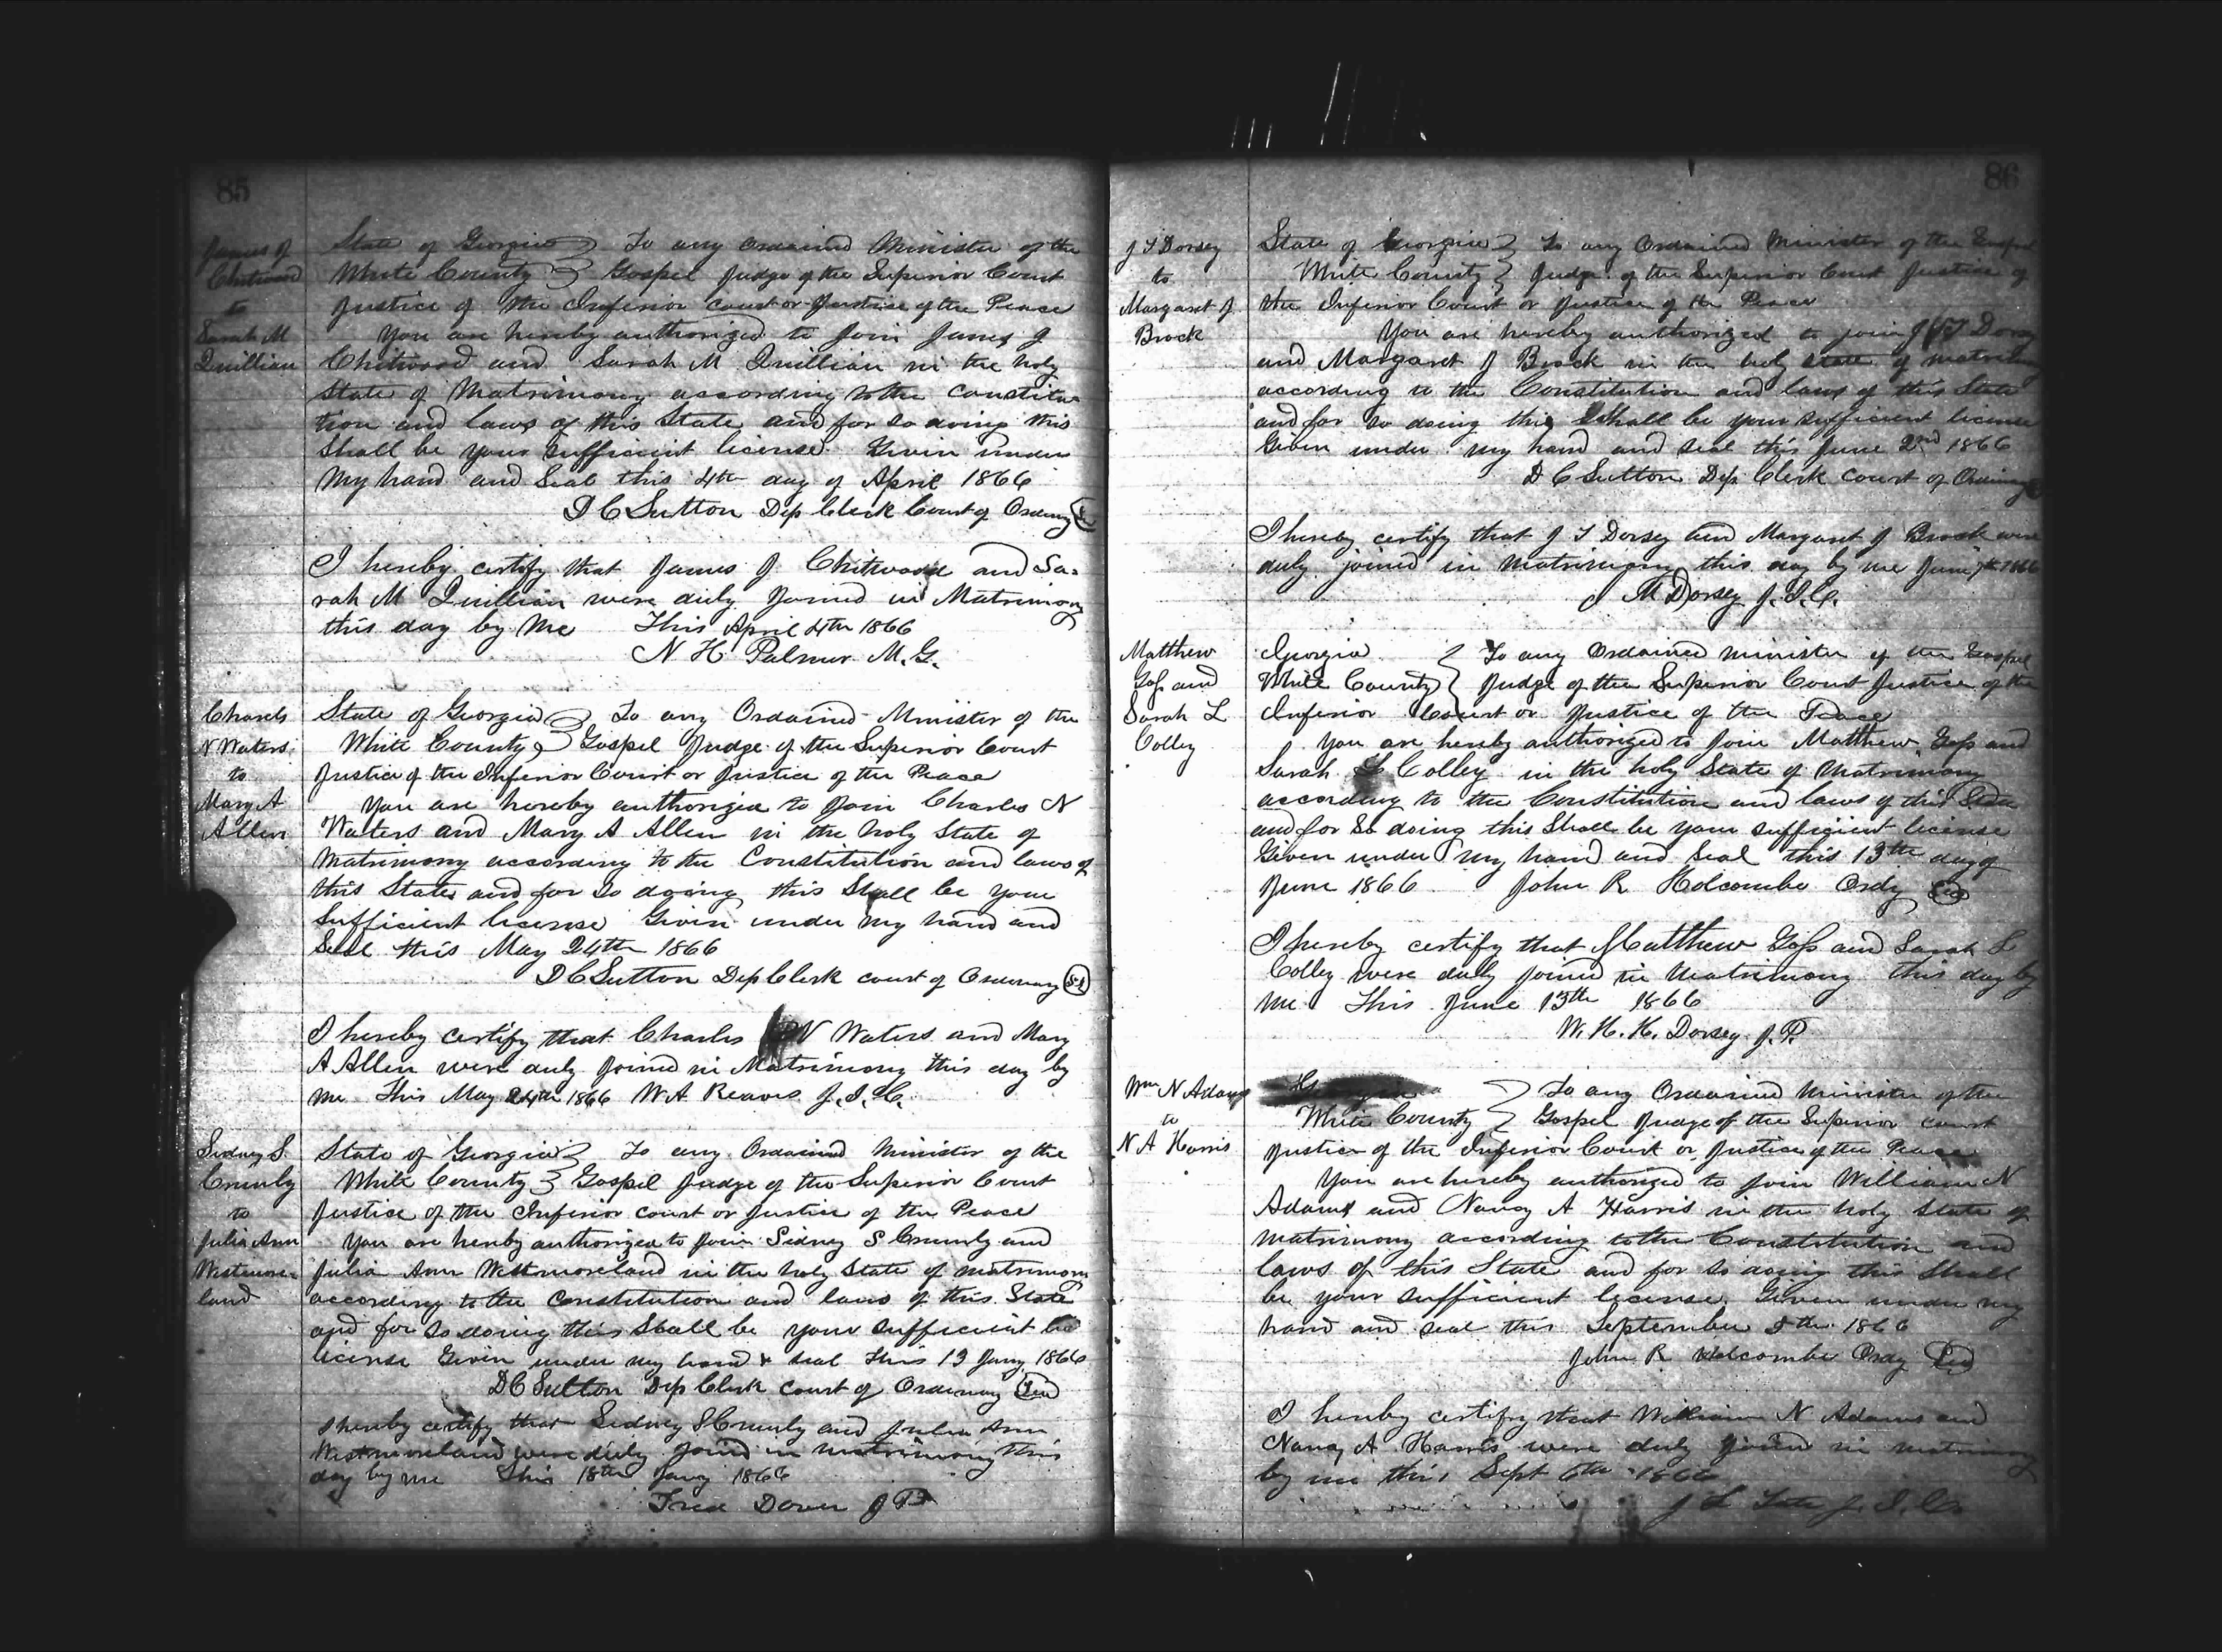 85
James J
Chitwood
to
Sarah M
Quillian
State of Georgia } To any Ordained Minister of the
White County } Gospel Judge of the Superior Court
Justice of the Inferior court or Justice of the Peace
You are hereby authorized to Join James J
Chitwood and Sarah M Quillian in the holy
State of Matrimony according to the Constitu
tion and laws of this State and for so doing this
Shall be your Sufficient license. Given under
My hand and Seal this 4th day of April 1866
D C Sutton Dep Clerk Court of Ordinary
I hereby certify that James J Chitwood and Sa=
rah M Quillian were duly Joined in Matrimony
this day by Me This April 4th 1866
N H Palmer M.G.
Charls
N Waters
to
Mary A
Allen
State of Georgia } To any Ordained Minister of the
White County } Gospel Judge of the Superior Court
Justice of the Inferior Court or Justice of the Peace
You are hereby authorized to Join Charles N
Waters and Mary A Allen in the holy State of
Matrimony according to the Constitution and laws of
this State and for So doing this Shall be your
Sufficient license Given under My hand and
Seal this May 24th 1866
D C Sutton Dep Clerk court of Ordinary
I hereby certify that Charles N Waters and Mary
A Allen were duly Joined in Matrimony this day by
me This May 24th 1866 W A Reaves J.I.C.
Sidney S.
Crumly
to
Julia Ann
Westmore=
land
State of Georgia } To any Ordained Minister of the
White County } Gospel Judge of the Superior Court
Justice of the Inferior court or Justice of the Peace
You are hereby authorized to Join Sidney S Crumly and
Julia Ann Westmoreland in the holy State of matrimony
according to the Constitution and laws of this State
and for so doing this Shall be your sufficient
license Given under my hand & seal This 13 Jany 1866
D C Sutton Dep Clerk court of Ordinary
I hereby certify that Sidney S Crumly and Julia Ann
Westmoreland were duly joined in matrimony this
day by me This 18th Jany 1866
Fred Dover J P
86
J T Dorsey
to
Margaret J
Brock
State of Georgia } To any Ordained Minister of the Gospel
White County } Judge of the Superior Court Justice of
the Inferior Court or Justice of the Peace
You are hereby authorized to join J T Dorsey
and Margaret J Brock in the holy state of matrimony
according to the Constitution and laws of this State
and for so doing this Shall be your sufficient license
Given under my hand and seal this June 2nd 1866
D C Sutton Dep Clerk court of Ordinary
I hereby certify that J T Dorsey and Margaret J Brock were
duly joined in Matrimony this day by me June 7th 1866
M Dorsey J.I.C.
Matthew
Goss and
Sarah L
Colley
Georgia } To any Ordained minister of the Gospel
White County } Judge of the Superior Court Justice of the
Inferior Court or Justice of the Peace
You are hereby authorized to Join Matthew Goss and
Sarah L Colley in the holy State of Matrimony
according to the Constitution and laws of this State
and for So doing this Shall be your sufficient license
Given under my hand and Seal this 13th day of
June 1866 John R Holcombe Ordy
I hereby certify that Matthew Goss and Sarah L
Colley were duly joined in Matrimony this day by
me This June 13th 1866
W. H. K. Dorsey J.P.
Wm N Adams
to
N A Harris
Georgia } To any Ordained Minister of the
White County } Gospel Judge of the Superior court
Justice of the Inferior Court or Justice of the Peace
You are hereby authorized to join William N
Adams and Nancy A Harris in the holy State of
matrimony according to the Constitution and
laws of this State and for So doing this Shall
be your sufficient license. Given under my
hand and seal this September 5th 1866
John R Holcombe Ordy
I hereby certify that William N Adams and
Nancy A Harris were duly joined in matrimony
by me this Sept 6th 1866
J. I. C.